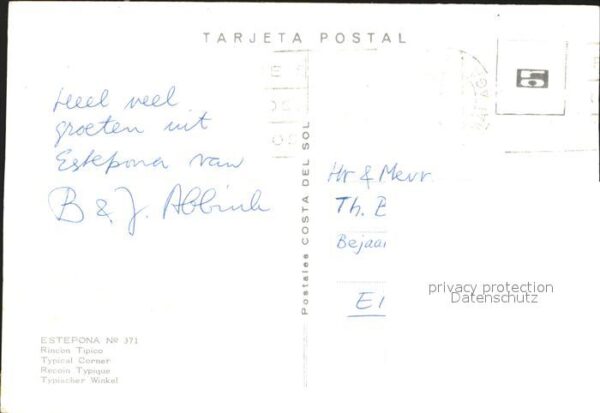 TARJETA POSTAL
Heel veel
groeten uit
Estepona van
B & J. Abbink
Postales COSTA DEL SOL
Hr & Mevr.
Th. E
Bejaar
E1
privacy protection
Datenschutz
ESTEPONA Nº 371
Rincón Típico
Typical Corner
Recoin Typique
Typischer Winkel